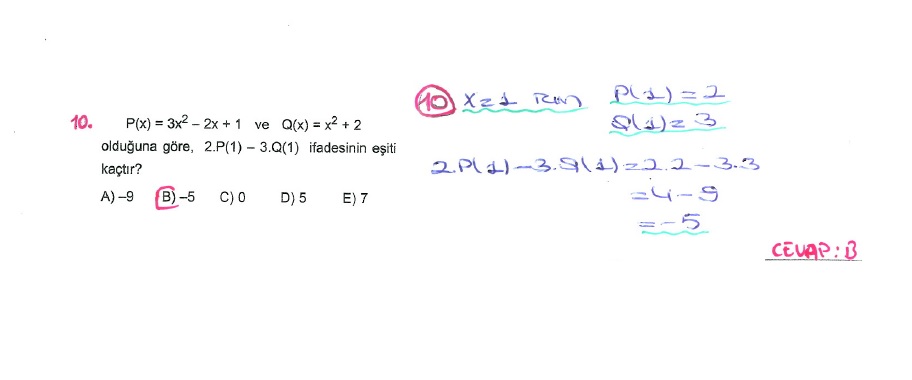 10. P(x) = 3x² – 2x + 1 ve Q(x) = x² + 2
olduğuna göre, 2.P(1) – 3.Q(1) ifadesinin eşiti
kaçtır?
A) –9 B) –5 C) 0 D) 5 E) 7
10 x=1 için P(1) = 2
Q(1) = 3
2.P(1) – 3.Q(1) = 2.2 – 3.3
= 4 – 9
= – 5
CEVAP : B